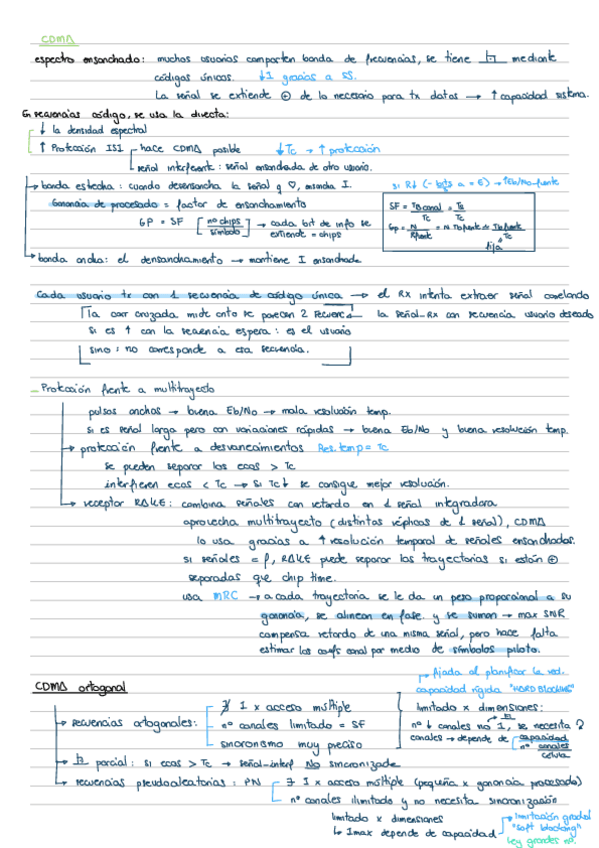 CDMA
espectro ensanchado: muchos usuarios comparten banda de frecuencias, se tiene ⊥ mediante
códigos únicos. ↓I gracias a SS.
La señal se extiende ⊕ de lo necesario para tx datos → ↑ capacidad sistema.
En secuencias código, se usa la directa:
↓ la densidad espectral
↑ Protección ISI hace CDMA posible ↓Tc → ↑ protección
señal interferente: señal ensanchada de otro usuario.
→ banda estrecha: cuando desensancha la señal q ♡, ensancha I. si R↓ (- bits a = E) → ↑Eb/No-fuente
Ganancia de procesado = factor de ensanchamiento
GP = SF [nº chips / símbolo] → cada bit de info se
extiende = chips
SF = = Ts
Tc Tc
Gp = N
Rfuente Tc
fija
→ banda ancha: el desensanchamiento → mantiene I ensanchada
Cada usuario tx con 1 secuencia de código única → el RX intenta extraer señal correlando
la corr cruzada mide cnto se parecen 2 secuenc la señal-Rx con secuencia usuario deseado
si es ↑ con la secuencia espera: es el usuario
sino: no corresponde a esa secuencia.
Protección frente a multitrayecto
pulsos anchos → buena Eb/No → mala resolución temp.
si es señal larga pero con variaciones rápidas → buena Eb/No y buena resolución temp.
→ protección frente a desvanecimientos Res.temp = Tc
se pueden separar los ecos > Tc
interfieren ecos < Tc → si Tc↓ se consigue mejor resolución.
→ receptor RAKE: combina señales con retardo en 1 señal integradora
aprovecha multitrayecto (distintas réplicas de 1 señal), CDMA
lo usa gracias a ↑ resolución temporal de señales ensanchadas.
si señales = f, RAKE puede separar las trayectorias si están ⊕
separadas que chip time.
usa MRC → a cada trayectoria se le da un peso proporcional a su
ganancia, se alinean en fase y se suman → max SNR
compensa retardo de una misma señal, pero hace falta
estimar los coefs canal por medio de símbolos piloto.
CDMA ortogonal
→ secuencias ortogonales: ∄ I x acceso múltiple
nº canales limitado = SF
sincronismo muy preciso
→ fijada al planificar la red.
capacidad rígida "HARD BLOCKING"
limitado x dimensiones:
nº ↓ canales no I, se necesita ?
canales → depende de capacidad
nº canales
célula
→ ⊥ parcial: si ecos > Tc → señal-interf No sincronizada
→ secuencias pseudoaleatorias: PN ∃ I x acceso múltiple (pequeña x ganancia procesado)
nº canales ilimitado y no necesita sincronización
limitado x dimensiones
↳ Imax depende de capacidad → limitación gradual
"soft blocking"
Ley grandes nº.